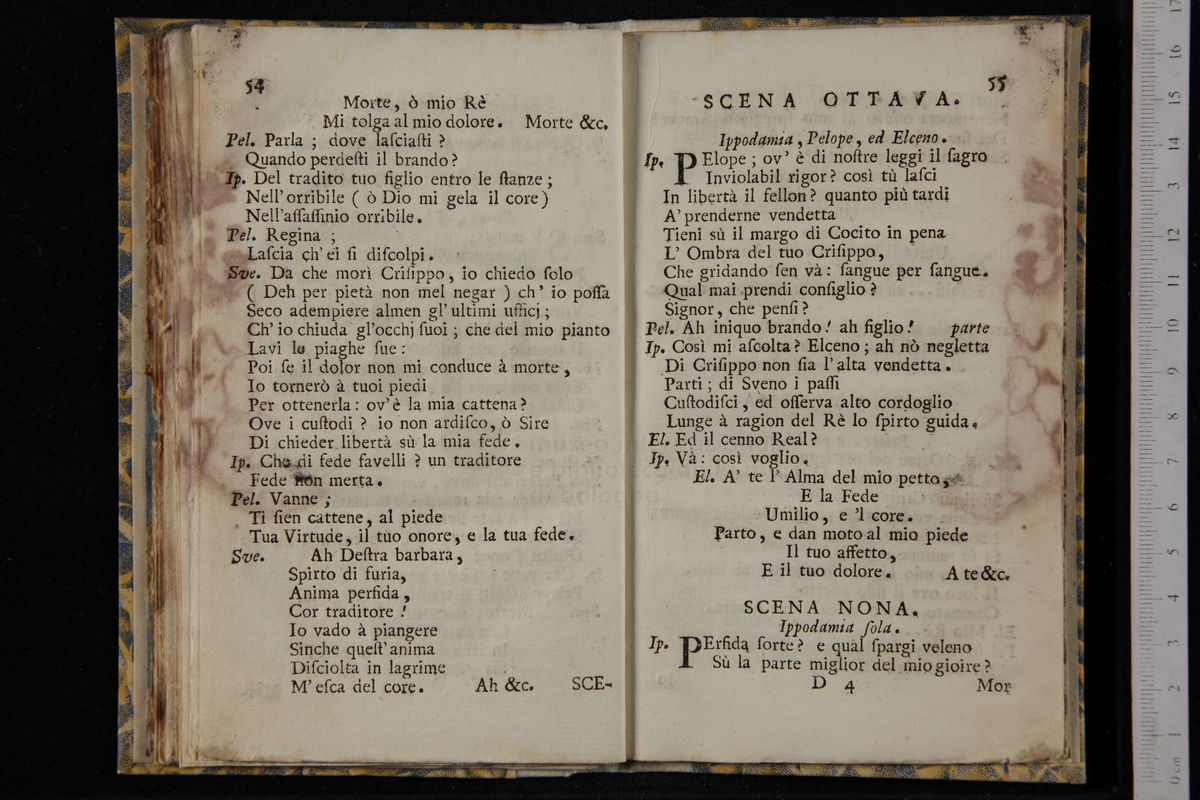 54
Morte, ò mio Rè
Mi tolga al mio dolore. Morte &c.
Pel. Parla ; dove laſciaſti ?
Quando perdeſti il brando ?
Ip. Del tradito tuo figlio entro le ſtanze ;
Nell'orribile ( ò Dio mi gela il core )
Nell'aſſaſſinio orribile.
Pel. Regina ;
Laſcia ch'ei ſi diſcolpi.
Sve. Da che morì Criſippo, io chiedo ſolo
( Deh per pietà non mel negar ) ch' io poſſa
Seco adempiere almen gl'ultimi ufficj ;
Ch'io chiuda gl'occhj ſuoi ; che del mio pianto
Lavi le piaghe ſue :
Poi ſe il dolor non mi conduce à morte,
Io tornerò à tuoi piedi
Per ottenerla : ov'è la mia cattena ?
Ove i cuſtodi ? io non ardiſco, ò Sire
Di chieder libertà sù la mia fede.
Ip. Che di fede favelli ? un traditore
Fede non merta.
Pel. Vanne ;
Ti ſien cattene, al piede
Tua Virtude, il tuo onore, e la tua fede.
Sve. Ah Deſtra barbara,
Spirto di furia,
Anima perfida,
Cor traditore !
Io vado à piangere
Sinche queſt'anima
Diſciolta in lagrime
M'eſca del core. Ah &c. SCE-
55
SCENA OTTAVA.
Ippodamia, Pelope, ed Elceno.
Ip. PElope ; ov' è di noſtre leggi il ſagro
Inviolabil rigor ? così tù laſci
In libertà il fellon ? quanto più tardi
A' prenderne vendetta
Tieni sù il margo di Cocito in pena
L' Ombra del tuo Criſippo,
Che gridando ſen và : ſangue per ſangue.
Qual mai prendi conſiglio ?
Signor, che penſi ?
Pel. Ah iniquo brando ! ah figlio ! parte
Ip. Così mi aſcolta ? Elceno ; ah nò negletta
Di Criſippo non ſia l'alta vendetta.
Parti ; di Sveno i paſſi
Cuſtodiſci, ed oſſerva alto cordoglio
Lunge à ragion del Rè lo ſpirto guida.
El. Ed il cenno Real ?
Ip. Và : così voglio.
El. A' te l' Alma del mio petto,
E la Fede
Umilio, e 'l core.
Parto, e dan moto al mio piede
Il tuo affetto,
E il tuo dolore. A te &c.
SCENA NONA.
Ippodamia ſola.
Ip. PErfida ſorte ? e qual ſpargi veleno
Sù la parte miglior del mio gioire ?
D 4 Mor